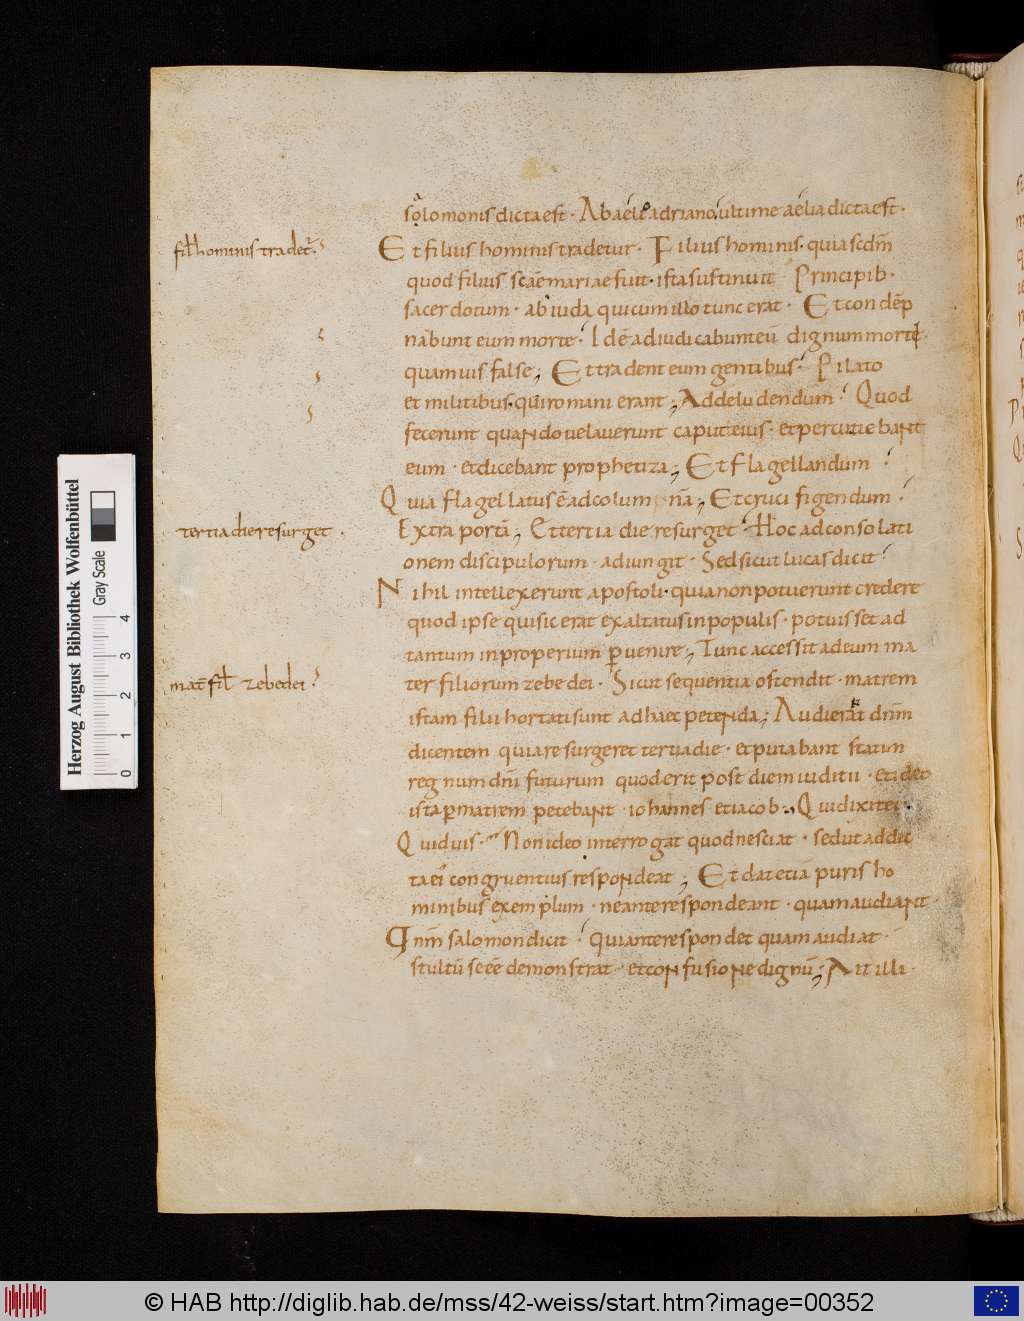 solomonis dicta est · Ab aelio adriano ultime aelia dicta est ·
filˀ hominis tradet͛
Et filius hominis tradetur · Filius hominis · quia scdm̄
quod filius scāe mariae fuit · ista sustinuit Principib·
sacerdotum · ab iuda qui cum illo tunc erat · Et condēp
nabunt eum morte · Idē adiudicabunt eū dignum morte ·
quamuis false ; Et tradent eum gentibus · Pilato
et militibus · qui romani erant ; Ad deludendum̄ Quod
fecerunt quando uelauerunt caput eius · et percutiebant
eum · et dicebant prophetiza ; Et flagellandum
Quia flagellatus ē ad columnā ; Et crucifigendum
tertia die resurget ·
Extra portā ; Et tertia die resurget · Hoc ad consolati
onem discipulorum · adiungit · Sed sicut lucas dicit
Nihil intellexerunt apostoli · quia non potuerunt credere
quod ipse qui sic erat exaltatus in populis · potuisset ad
tantum inproperium puenire ; Tunc accessit ad eum ma
mat̄ filˀ zebedei
ter filiorum zebedei · Sicut sequentia ostendit · matrem
istam filii hortati sunt ad haec petenda ; Audierat dnm̄
dicentem quia resurgeret tertia die · et putabant statim
regnum dnī futurum quod erit post diem iuditii · et ideo
ista p matrem petebant · iohannes et iacob ; Qui dixit ei ·
Quid uis · Non ideo interrogat quod nesciat · sed ut addic
ta ei congruentius respondeat ; Et dat etiā puris ho
minibus exemplum · ne ante respondeant · quam audiant ·
Qnm̄ salomon dicit · qui ante respondet quam audiat ·
stultū se eē demonstrat · et confusione dignū ; Ait illi ·
Herzog August Bibliothek Wolfenbüttel
Gray Scale
0 1 2 3 4
© HAB http://diglib.hab.de/mss/42-weiss/start.htm?image=00352